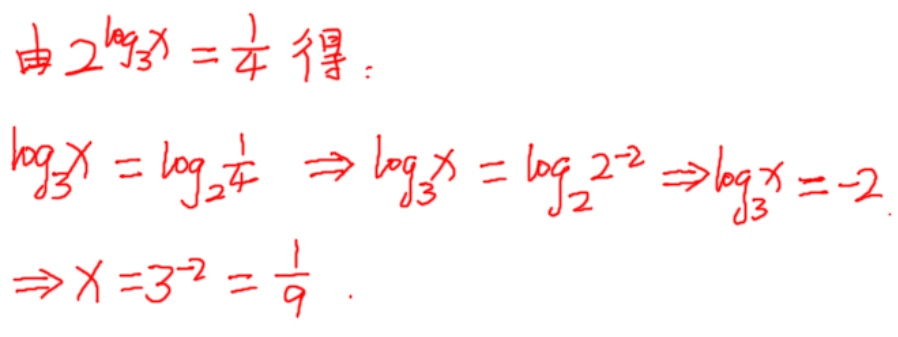 由 2^{log₃x} = 1/4 得:
log₃x = log₂ 1/4 ⇒ log₃x = log₂ 2⁻² ⇒ log₃x = -2.
⇒ x = 3⁻² = 1/9.